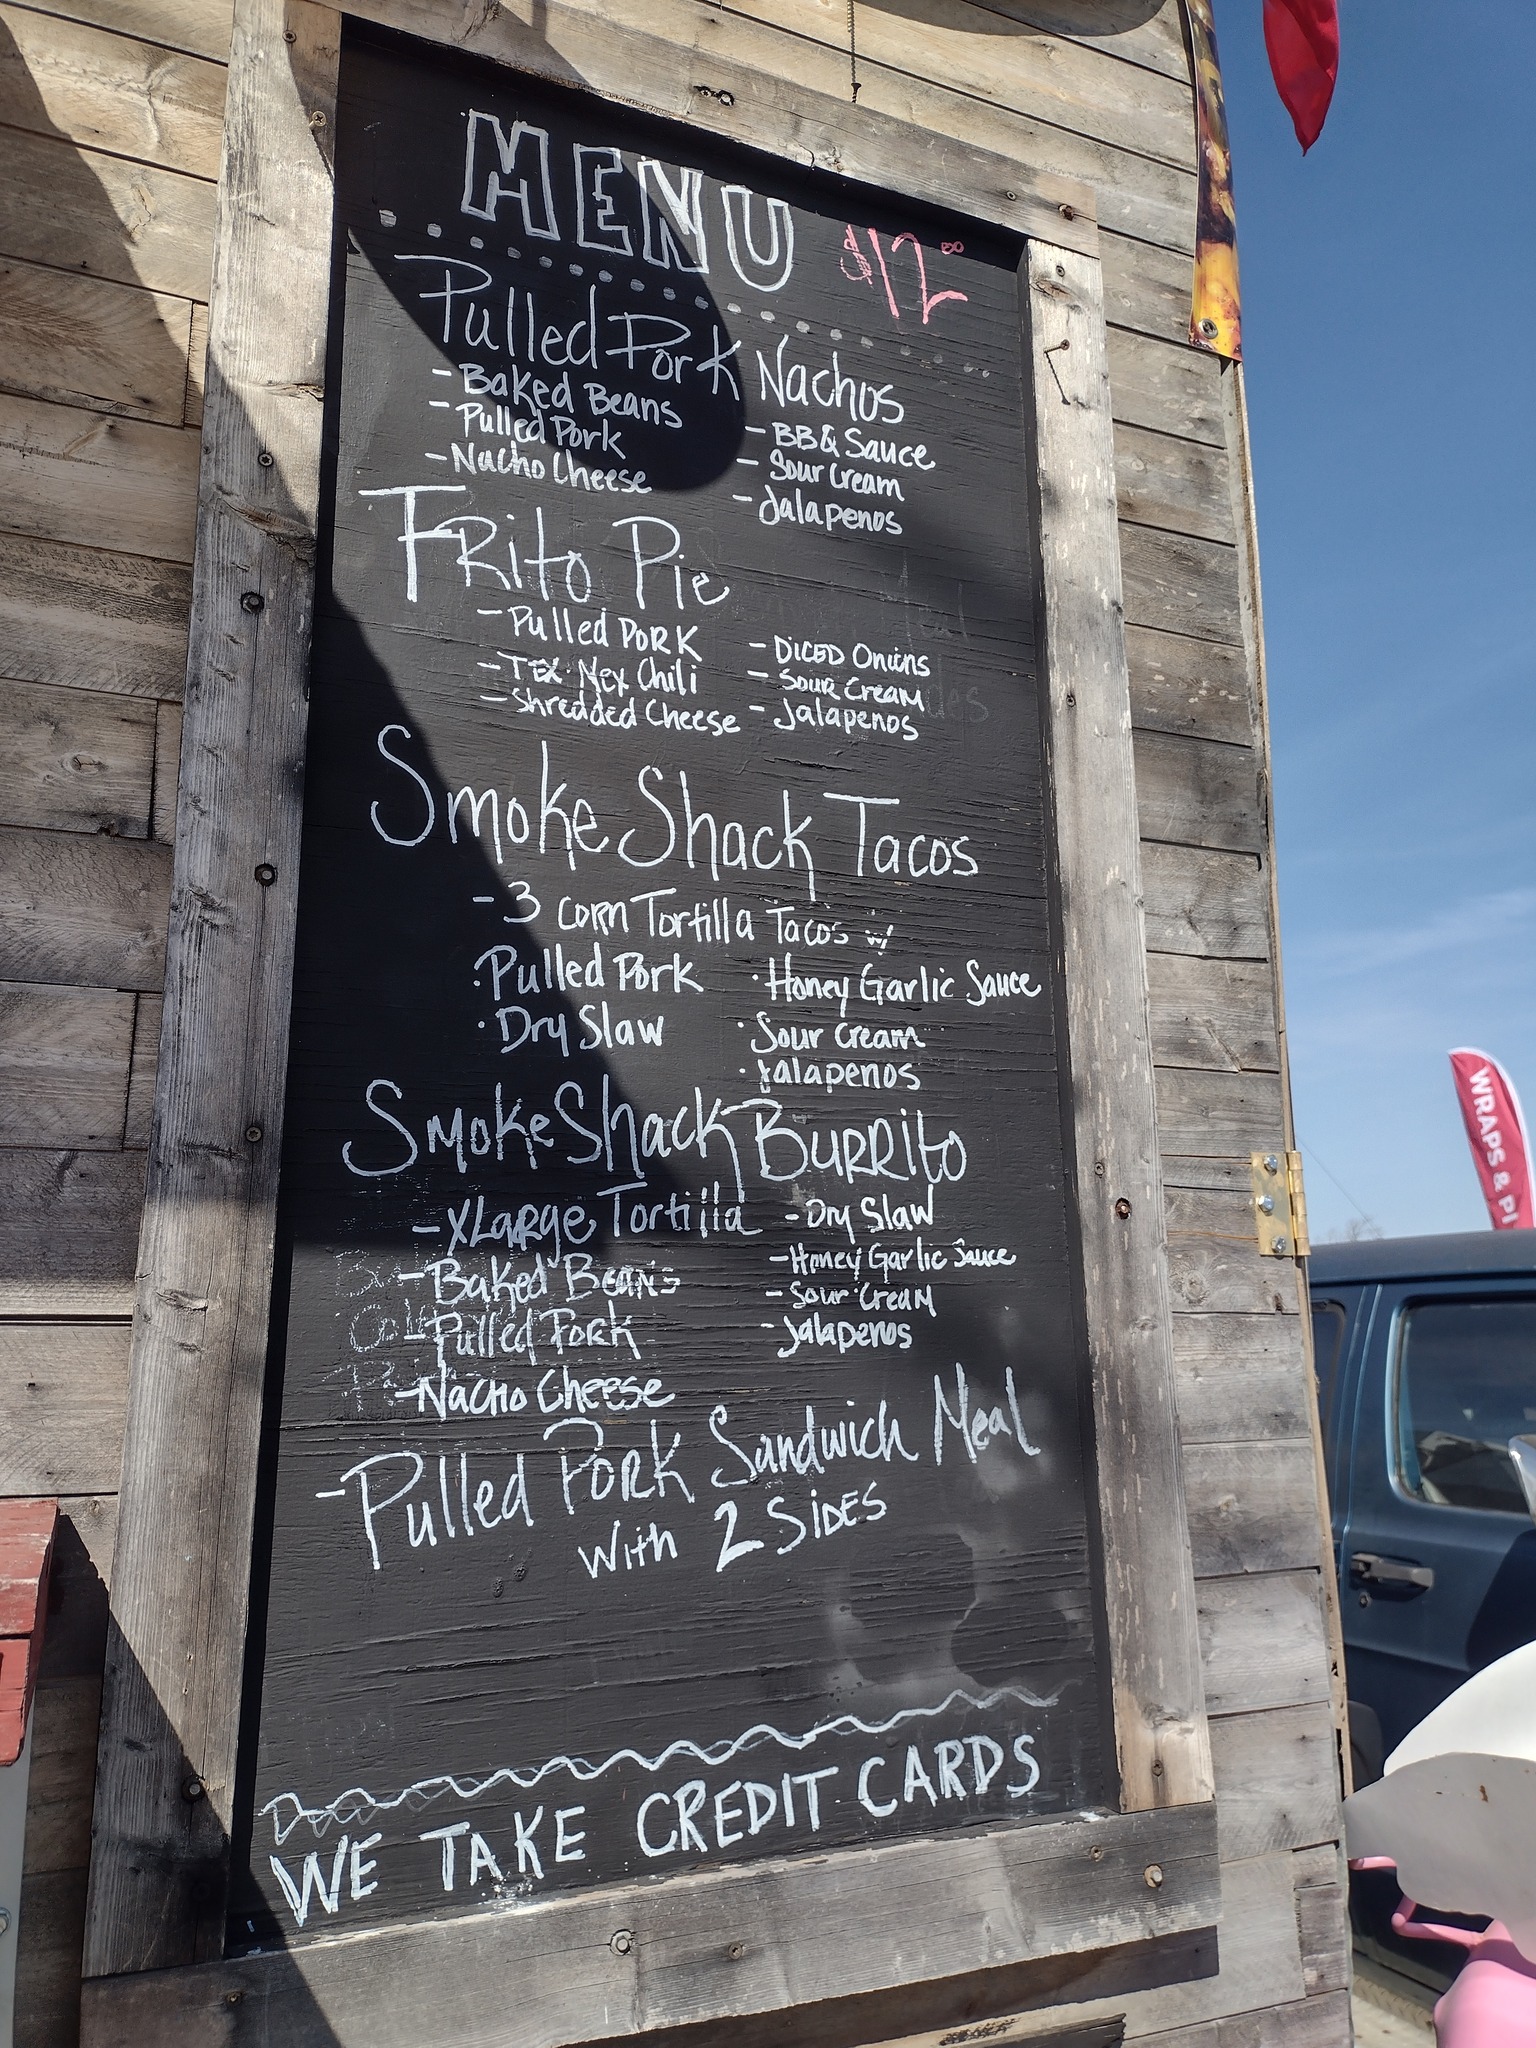 MENU $12.00
Pulled Pork Nachos
- Baked Beans
- Pulled Pork
- Nacho Cheese
- BBQ Sauce
- Sour Cream
- Jalapenos
Frito Pie
- Pulled Pork
- Tex-Mex Chili
- Shredded Cheese
- Diced Onions
- Sour Cream
- Jalapenos
Smoke Shack Tacos
- 3 Corn Tortilla Tacos w/
· Pulled Pork
· Dry Slaw
· Honey Garlic Sauce
· Sour Cream
· Jalapenos
Smoke Shack Burrito
- XLarge Tortilla
- Baked Beans
- Pulled Pork
- Nacho Cheese
- Dry Slaw
- Honey Garlic Sauce
- Sour Cream
- Jalapenos
- Pulled Pork Sandwich Meal
with 2 Sides
WE TAKE CREDIT CARDS
WRAPS &